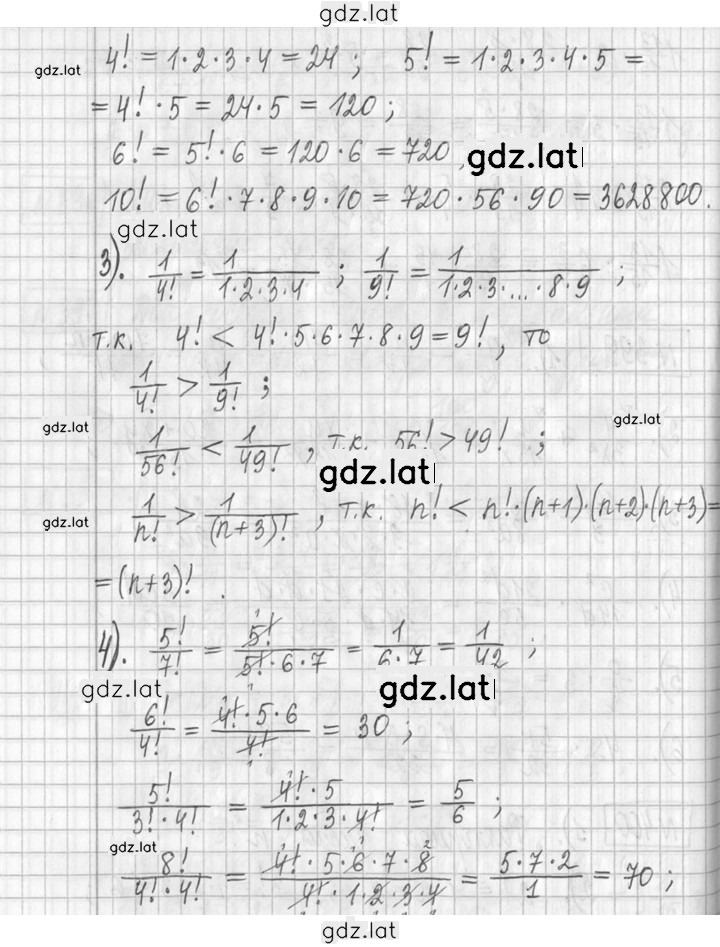 gdz.lat
4! = 1·2·3·4 = 24 ; 5! = 1·2·3·4·5 =
gdz.lat
= 4! · 5 = 24·5 = 120 ;
6! = 5! · 6 = 120·6 = 720 , gdz.lat
10! = 6! · 7·8·9·10 = 720·56·90 = 3628800.
gdz.lat
3). 1/4! = 1/(1·2·3·4) ; 1/9! = 1/(1·2·3·...·8·9) ;
т.к. 4! < 4!·5·6·7·8·9 = 9! , то
1/4! > 1/9! ;
gdz.lat gdz.lat
1/56! < 1/49! , т.к. 56! > 49! ;
gdz.lat
1/n! > 1/(n+3)! , т.к. n! < n!·(n+1)·(n+2)·(n+3) =
gdz.lat
= (n+3)! .
4). 5!/7! = 5!/(5!·6·7) = 1/(6·7) = 1/42 ;
gdz.lat gdz.lat
6!/4! = (4!·5·6)/4! = 30 ;
5!/(3!·4!) = (4!·5)/(1·2·3·4!) = 5/6 ;
gdz.lat
8!/(4!·4!) = (4!·5·6·7·8)/(4!·1·2·3·4) = (5·7·2)/1 = 70 ;
gdz.lat